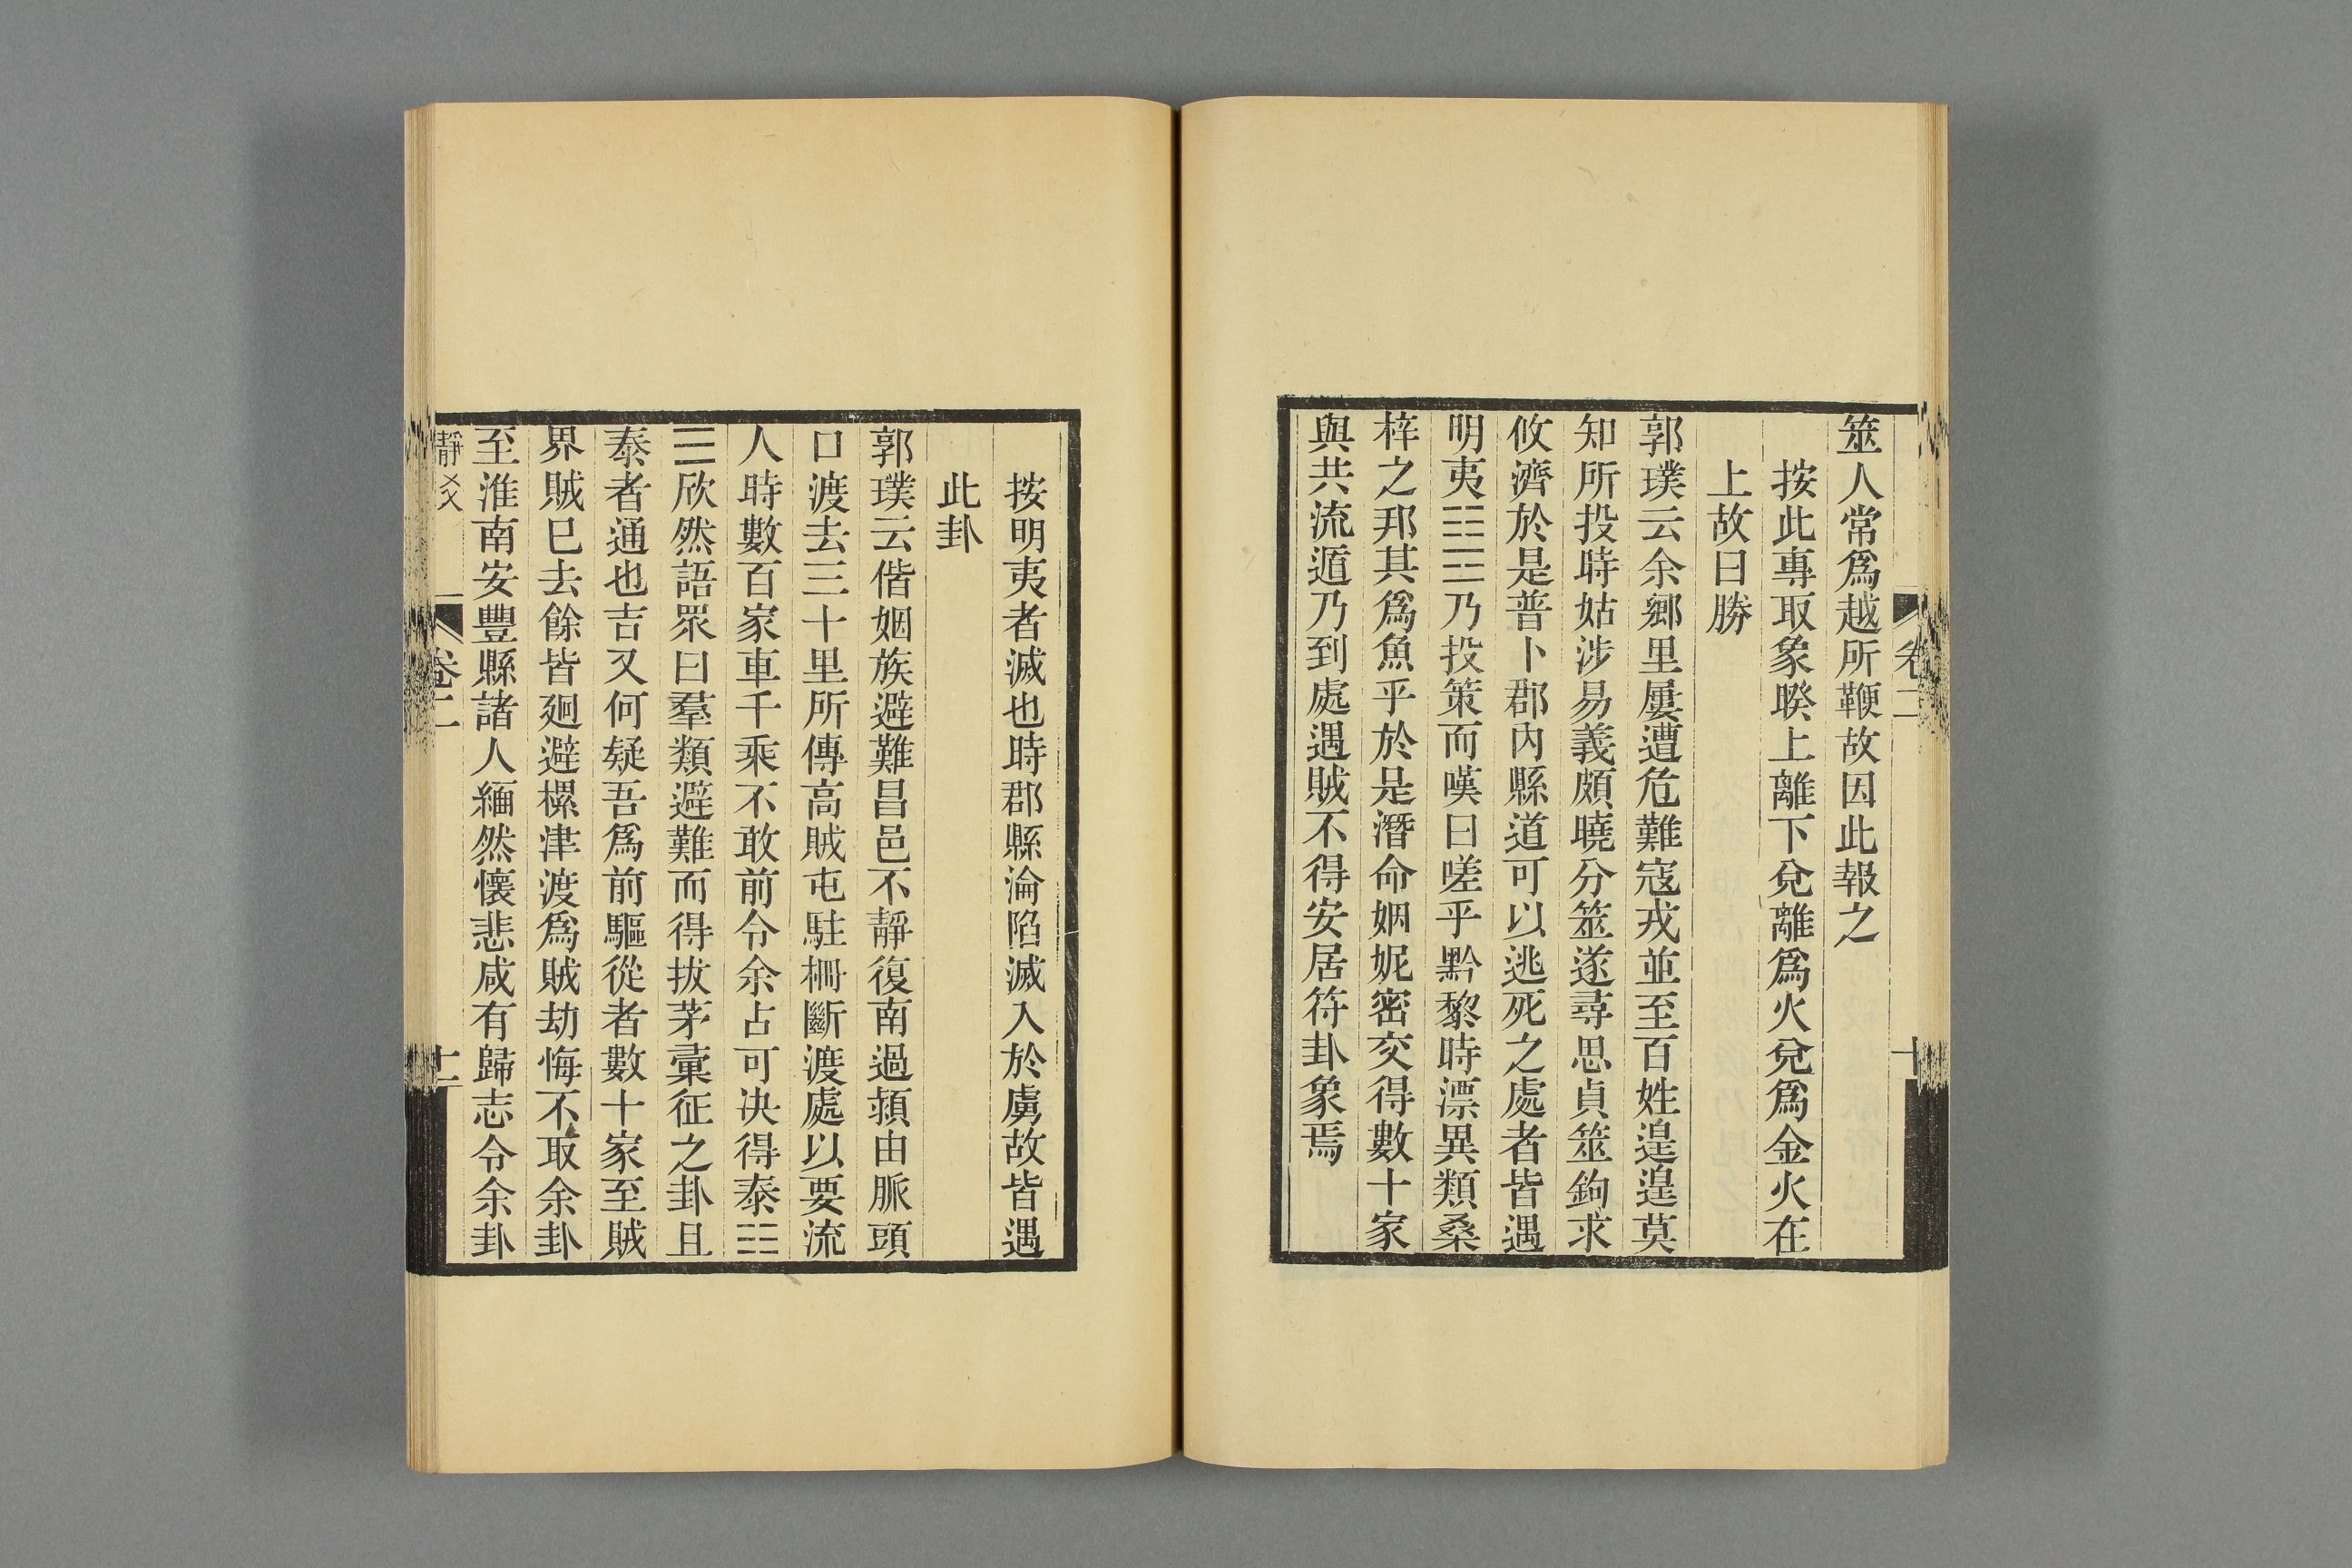 筮人常爲越所鞭故因此報之
按此專取象睽上離下兌離爲火兌爲金火在
上故曰勝
郭璞云余鄉里屢遭危難寇戎並至百姓遑遑莫
知所投時姑涉易義頗曉分筮遂尋思貞筮鉤求
攸濟於是普卜郡內縣道可以逃死之處者皆遇
明夷☷☲乃投策而嘆曰嗟乎黔黎時漂異類桑
梓之邦其爲魚乎於是潛命姻妮密交得數十家
與共流遁乃到處遇賊不得安居符卦象焉
卷二
十
按明夷者滅也時郡縣淪陷滅入於虜故皆遇
此卦
郭璞云偕姻族避難昌邑不靜復南過潁由脈頭
口渡去三十里所傳高賊屯駐柵斷渡處以要流
人時數百家車千乘不敢前令余占可決得泰☷
☰欣然語眾曰羣類避難而得拔茅彙征之卦且
泰者通也吉又何疑吾爲前驅從者數十家至賊
界賊巳去餘皆廻避樏津渡爲賊劫悔不取余卦
至淮南安豐縣諸人緬然懷悲咸有歸志令余卦
卷二
十一